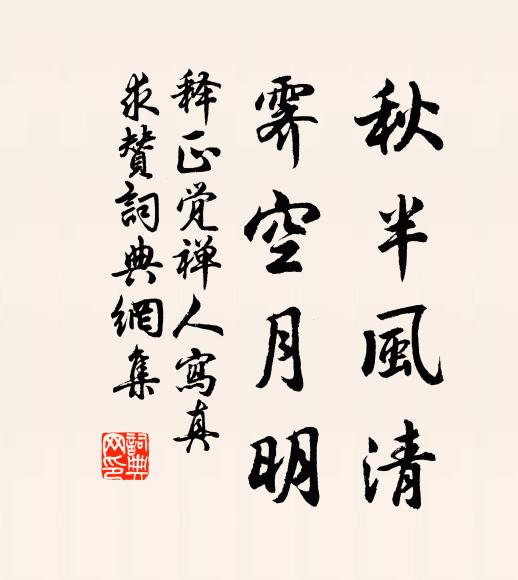 秋半風清
霽空月明
释正觉禅人寫真
求賛詞典網集
詞典网印